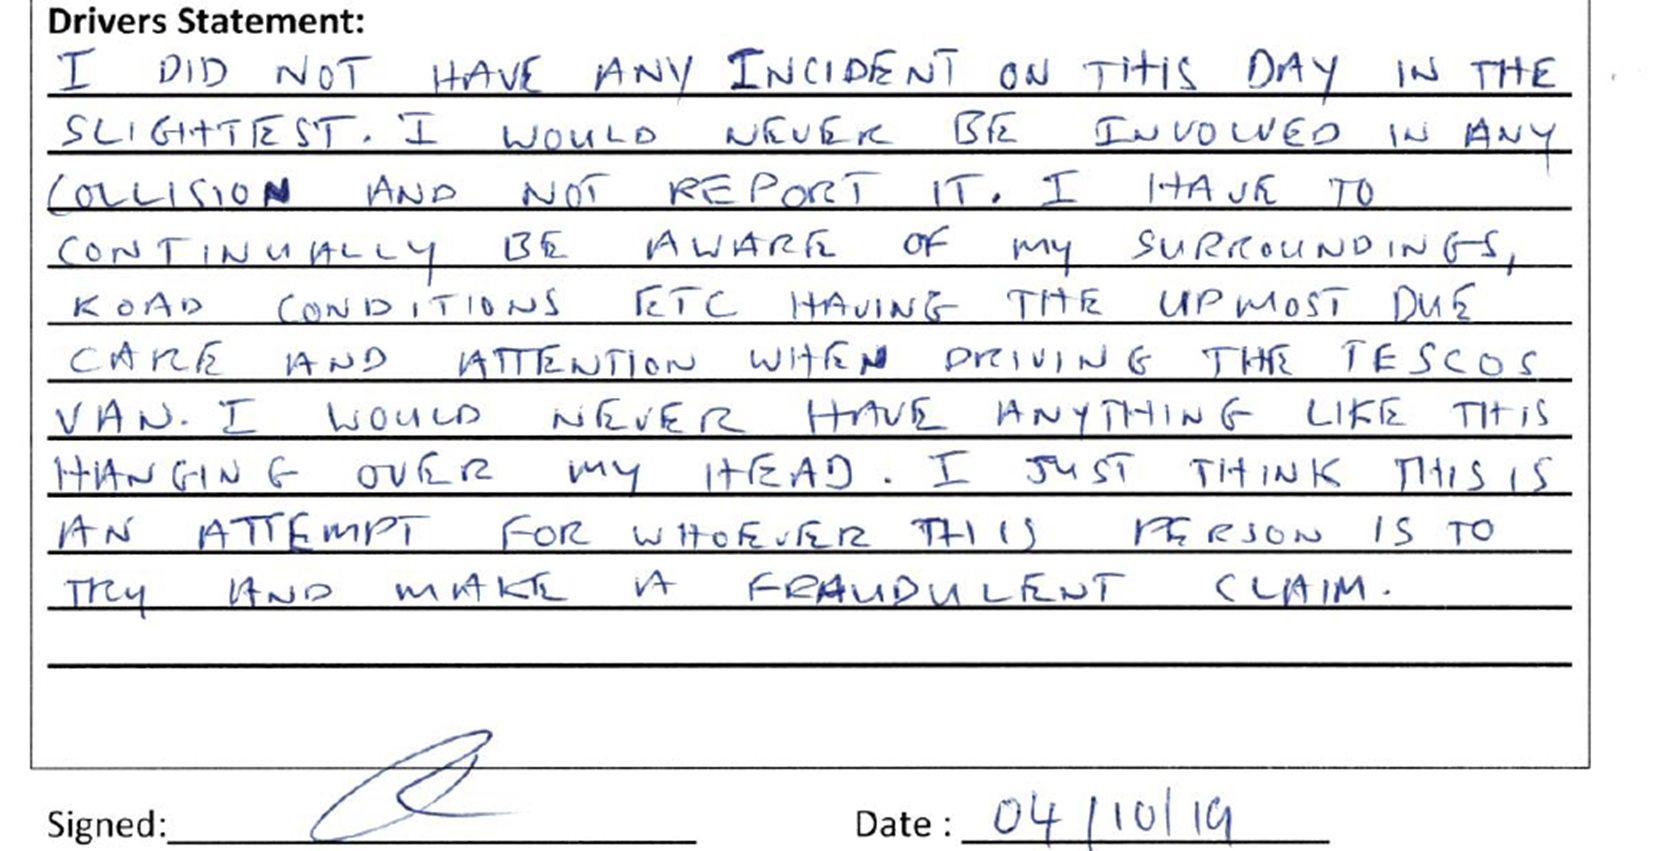 Drivers Statement:
I DID NOT HAVE ANY INCIDENT ON THIS DAY IN THE
SLIGHTEST. I WOULD NEVER BE INVOLVED IN ANY
COLLISION AND NOT REPORT IT. I HAVE TO
CONTINUALLY BE AWARE OF MY SURROUNDINGS,
ROAD CONDITIONS ETC HAVING THE UPMOST DUE
CARE AND ATTENTION WHEN DRIVING THE TESCOS
VAN. I WOULD NEVER HAVE ANYTHING LIKE THIS
HANGING OVER MY HEAD. I JUST THINK THIS IS
AN ATTEMPT FOR WHOEVER THIS PERSON IS TO
TRY AND MAKE A FRAUDULENT CLAIM.
Signed: Date : 04/10/19